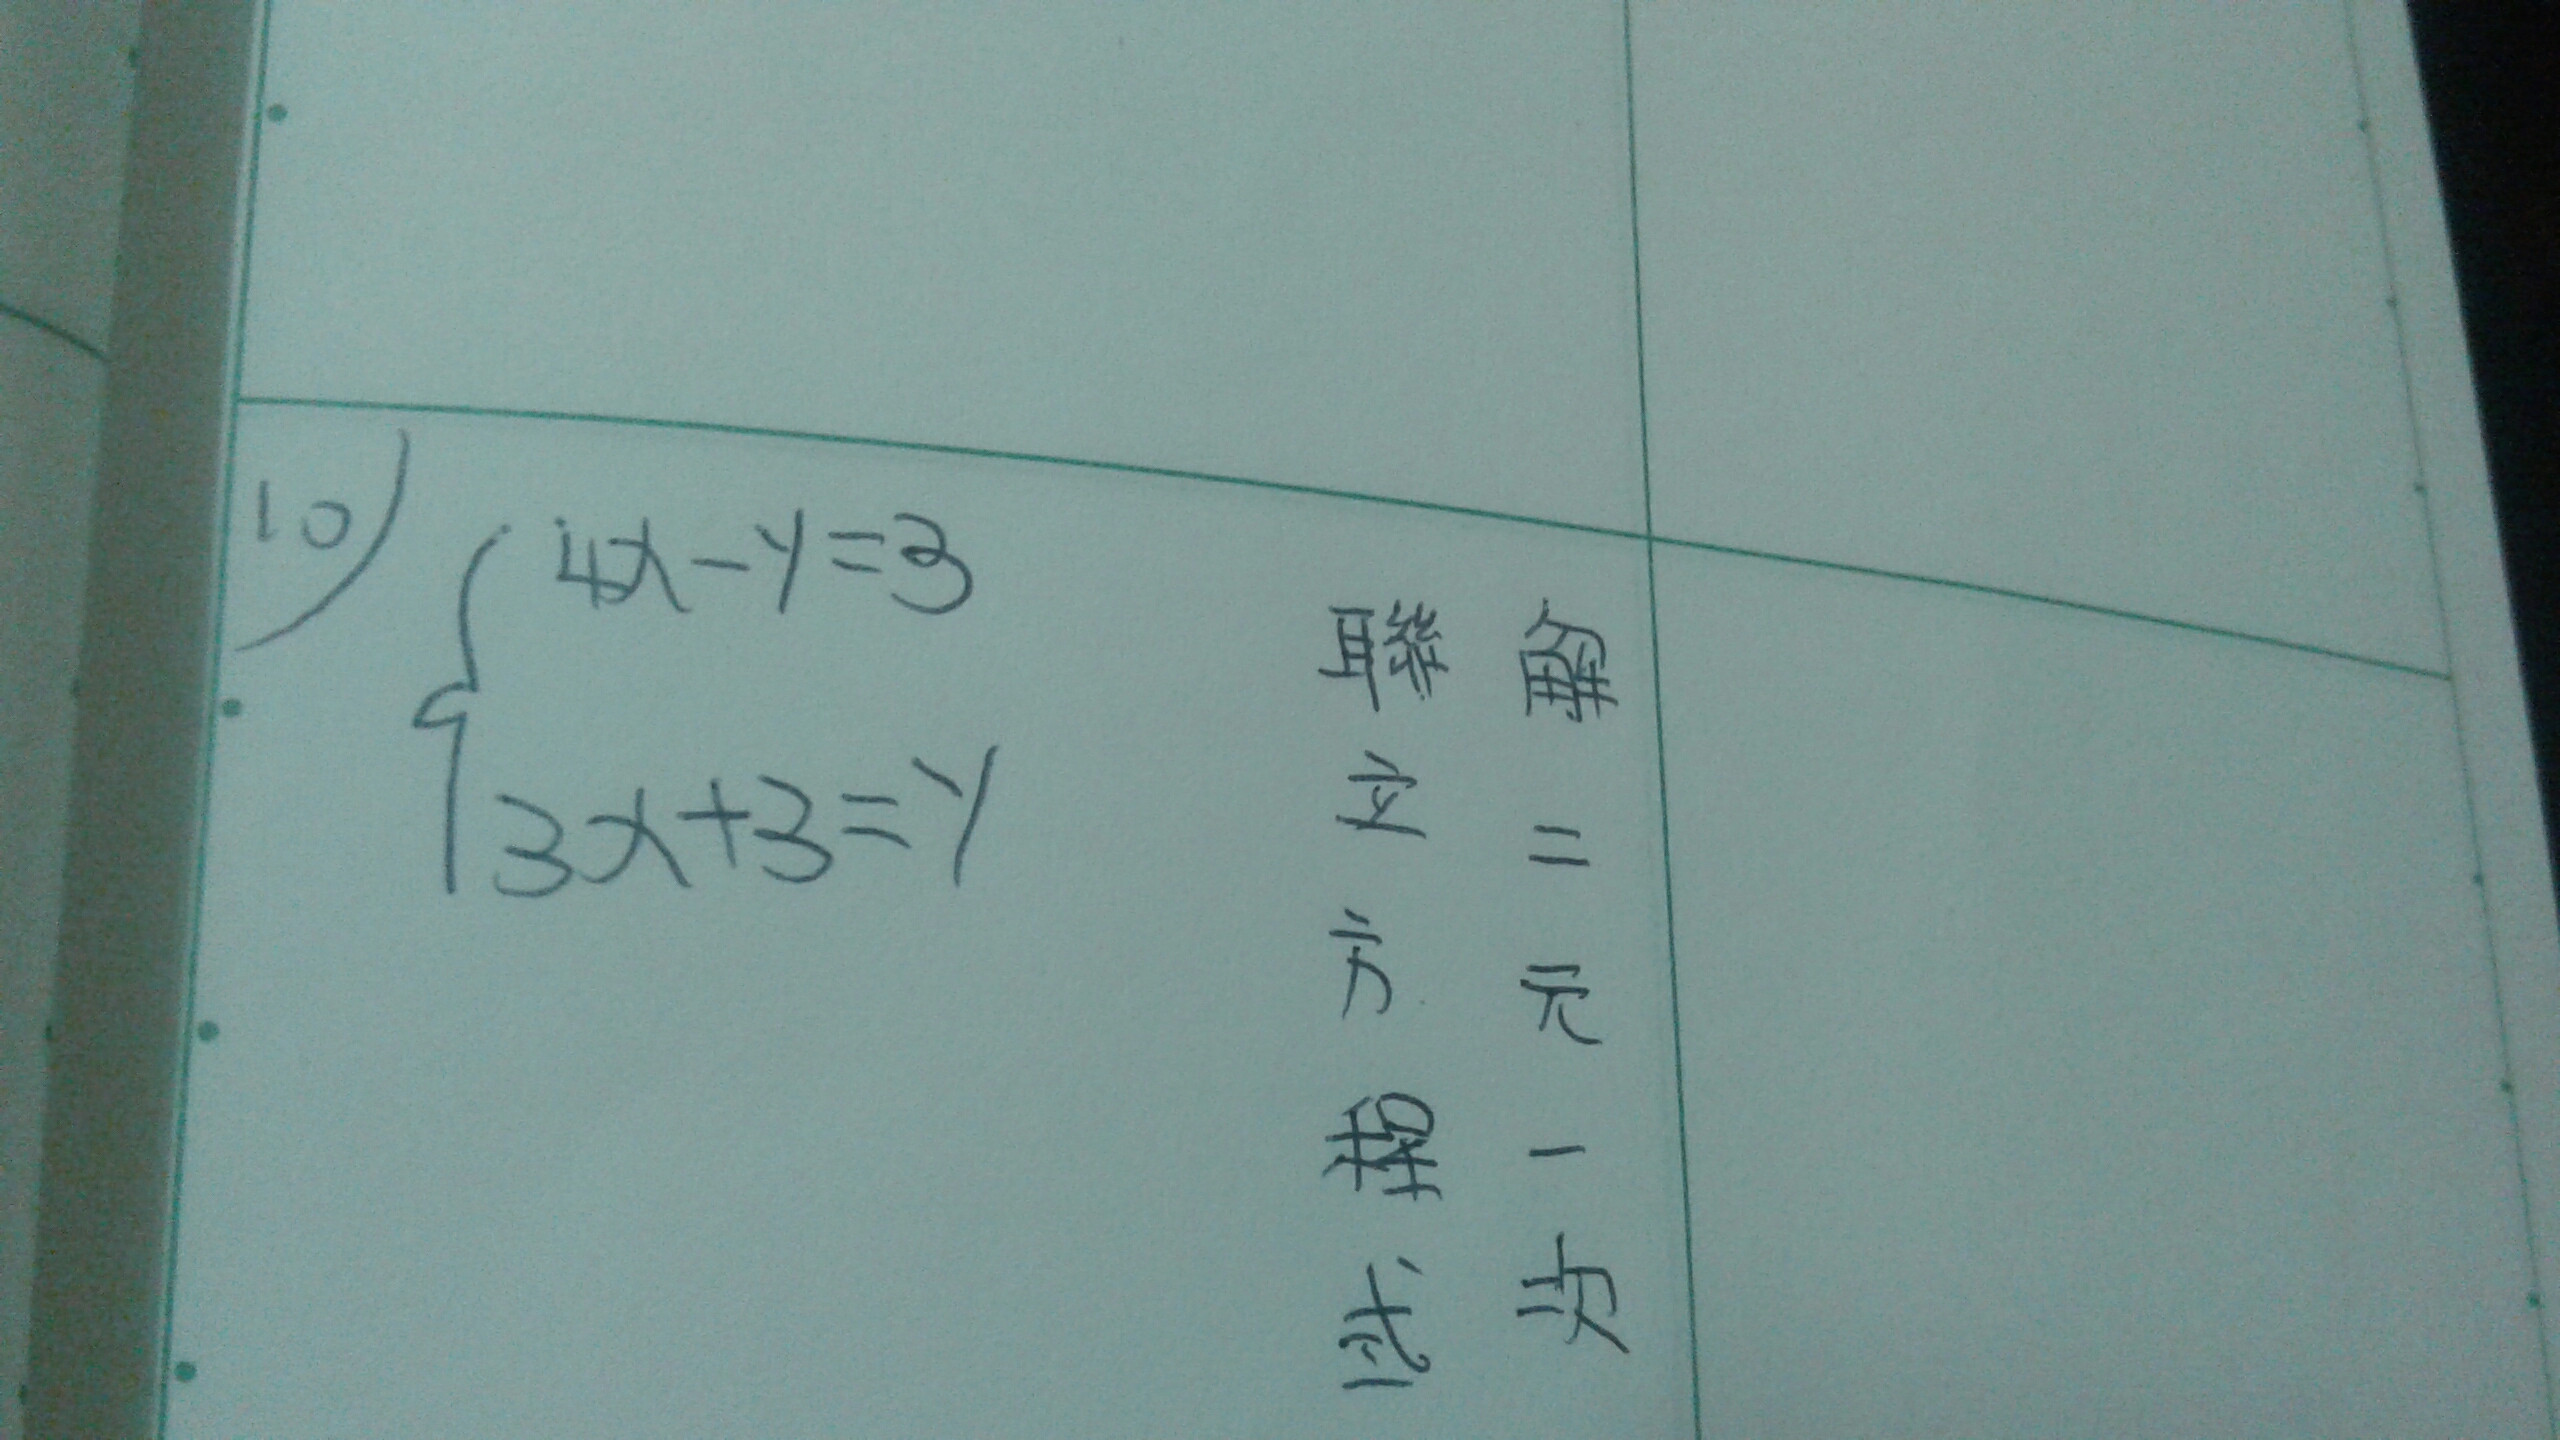 10)
4x-y=3
3x+3=y
解二元一次
聯立方程式